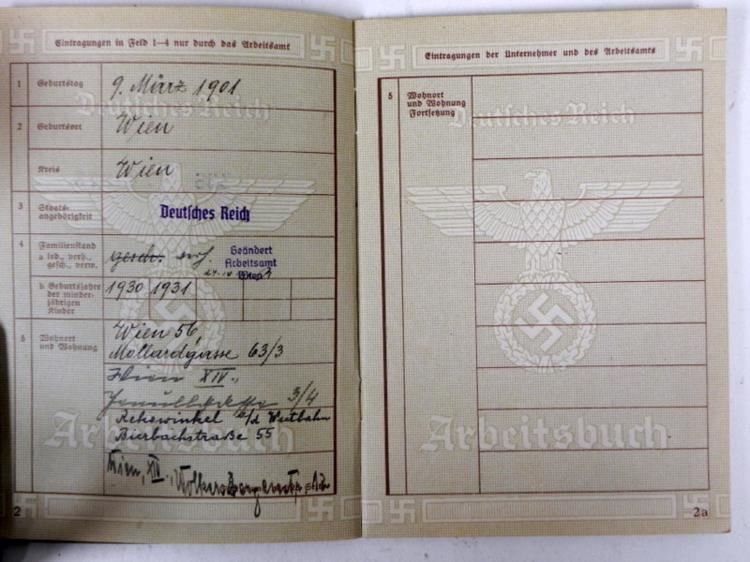 Eintragungen in Feld 1—4 nur durch das Arbeitsamt
1 Geburtstag 9. März 1901
2 Geburtsort Wien
Kreis Wien
3 Staats-
angehörigkeit
Deutsches Reich
4 Familienstand
a led., verh.,
gesch., verw.
gesch. verh.
Geändert
Arbeitsamt
Wien
b Geburtsjahre
der minder-
jährigen
Kinder
1930 1931
5 Wohnort
und Wohnung
Wien 56,
Mollardgasse 63/3
Wien XIV.,
3/4
Rekawinkel a/d Westbahn
Bierbachstraße 55
Wien, XIV.,
Deutsches Reich
Arbeitsbuch
2
Eintragungen der Unternehmer und des Arbeitsamts
5 Wohnort
und Wohnung
Fortsetzung
Deutsches Reich
Arbeitsbuch
2a